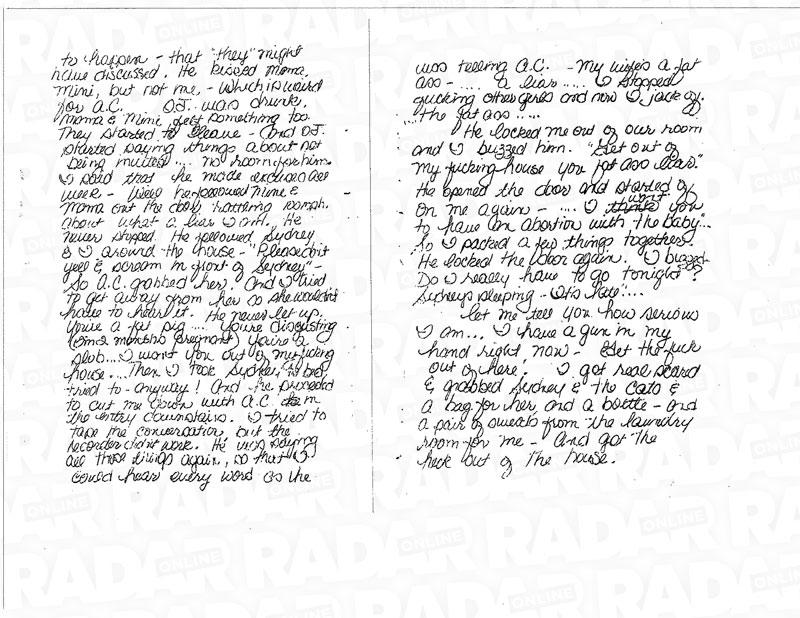 to happen - that "they" might
have discussed. He kissed Mama,
Mini, but not me, - which is weird
for A.C. O.J. was drunk,
Mama & Mini felt something too.
They started to leave - and O.J.
started saying things about not
being invited .... no room for him
I said that he made excuses all
week - Well he followed Mini &
Mama out the door, ranting oomph.
about what a liar I am. He
never stopped. He followed Sydney
& I around the house - "Please don't
yell & scream in front of Sydney" -
So A.C. grabbed her. And I tried
to get away from her so she wouldn't
have to hear it. He never let up.
You're a fat pig .... You're disgusting
(2 months pregnant) you're a
slob...I want you out of my fucking
house....Then I took Sydney to bed,
tried to - anyway! And he proceeded
to cut me down with A.C. in
the entry downstairs. I tried to
tape the conversation, but the
recorder didn't work. He was saying
all those things again, so that I
could hear every word as he
was telling A.C. - My wife's a fat
ass - .... a liar .... I stopped
fucking other girls and now I jack off.
.... the fat ass ....
He locked me out of our room
and I buzzed him. "Get out of
my fucking house you fat ass liar."
He opened the door and started off
on me again - .... I want you
to have an abortion with the baby"...
So I packed a few things together.
He locked the door again. I buzzed -
Do I really have to go tonight?
Sydney's sleeping - It's late"....
let me tell you how serious
I am... I have a gun in my
hand right now - Get the fuck
out of here! I got real scared
& grabbed Sydney & the cats &
a bag for her, and a bottle - and
a pair of sweats from the laundry
room for me - And got the
heck out of the house.
RADAR ONLINE